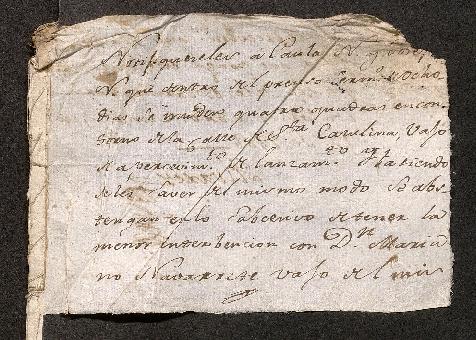 Notifiqueseles á Paula N. y Jose
N. que dentro del preciso termº de Ocho
dias se muden quatro quadras en con
torno de la Calle de Sta Carolina vajo
de apercivimto de lanzamto y
deles saver del mismo modo Se abs
tengan en lo subcecivo de tener la
menor interbencion con Dn Maria
no Navarrete vajo del mis